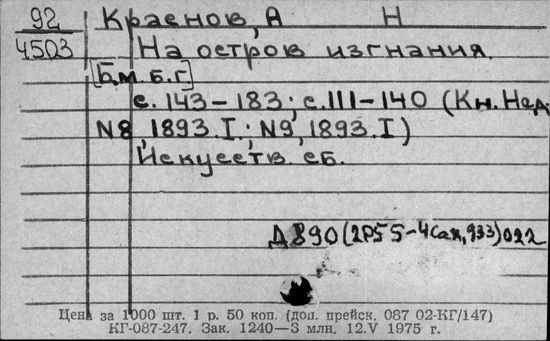 92
4503
Краснов, А Н
На остров изгнания.
[Б.м. б.г.]
с. 143-183; с. 111-140 (Кн. Нед.
N8, 1893. I.; N9, 1893. I)
Искусств. сб.
Д 890 (2Р55-4Сах, 933) 022
Цена за 1000 шт. 1 р. 50 коп. (доп. прейск. 087 02-КГ/147)
КГ-087-247. Зак. 1240—3 млн. 12.V 1975 г.